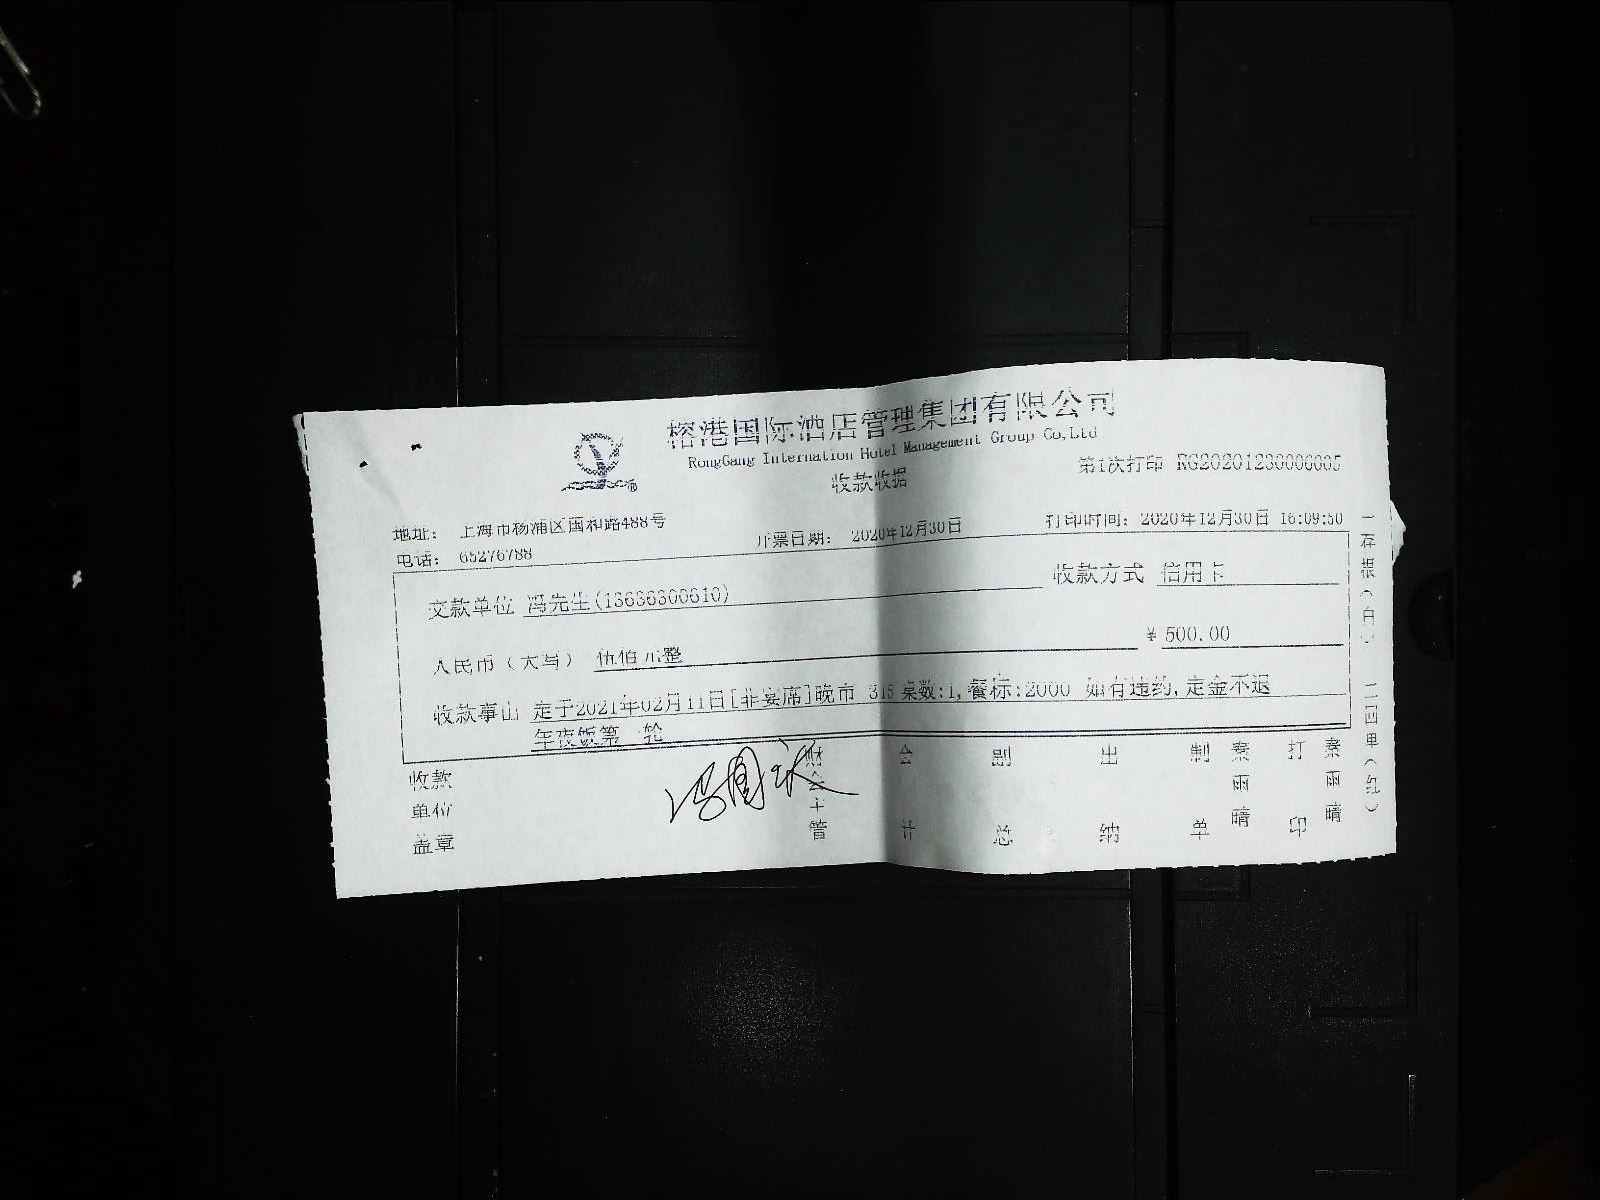 榕港国际酒店管理集团有限公司
RongGang Internation Hotel Management Group Co,Ltd
收款收据
第1次打印 RG20201230006005
地址： 上海市杨浦区国和路488号
电话： 65276788
开票日期： 2020年12月30日
打印时间：2020年12月30日 16:09:50
交款单位 冯先生(13636300610)
收款方式 信用卡
人民币（大写） 伍佰元整
¥ 500.00
收款事由 定于2021年02月11日[非宴席]晚市 315 桌数:1,餐标:2000 如有违约,定金不退
年夜饭第一轮
收款单位盖章
财会主管
会计
副总
出纳
制单
打印
一存根(白) 二回单(红)